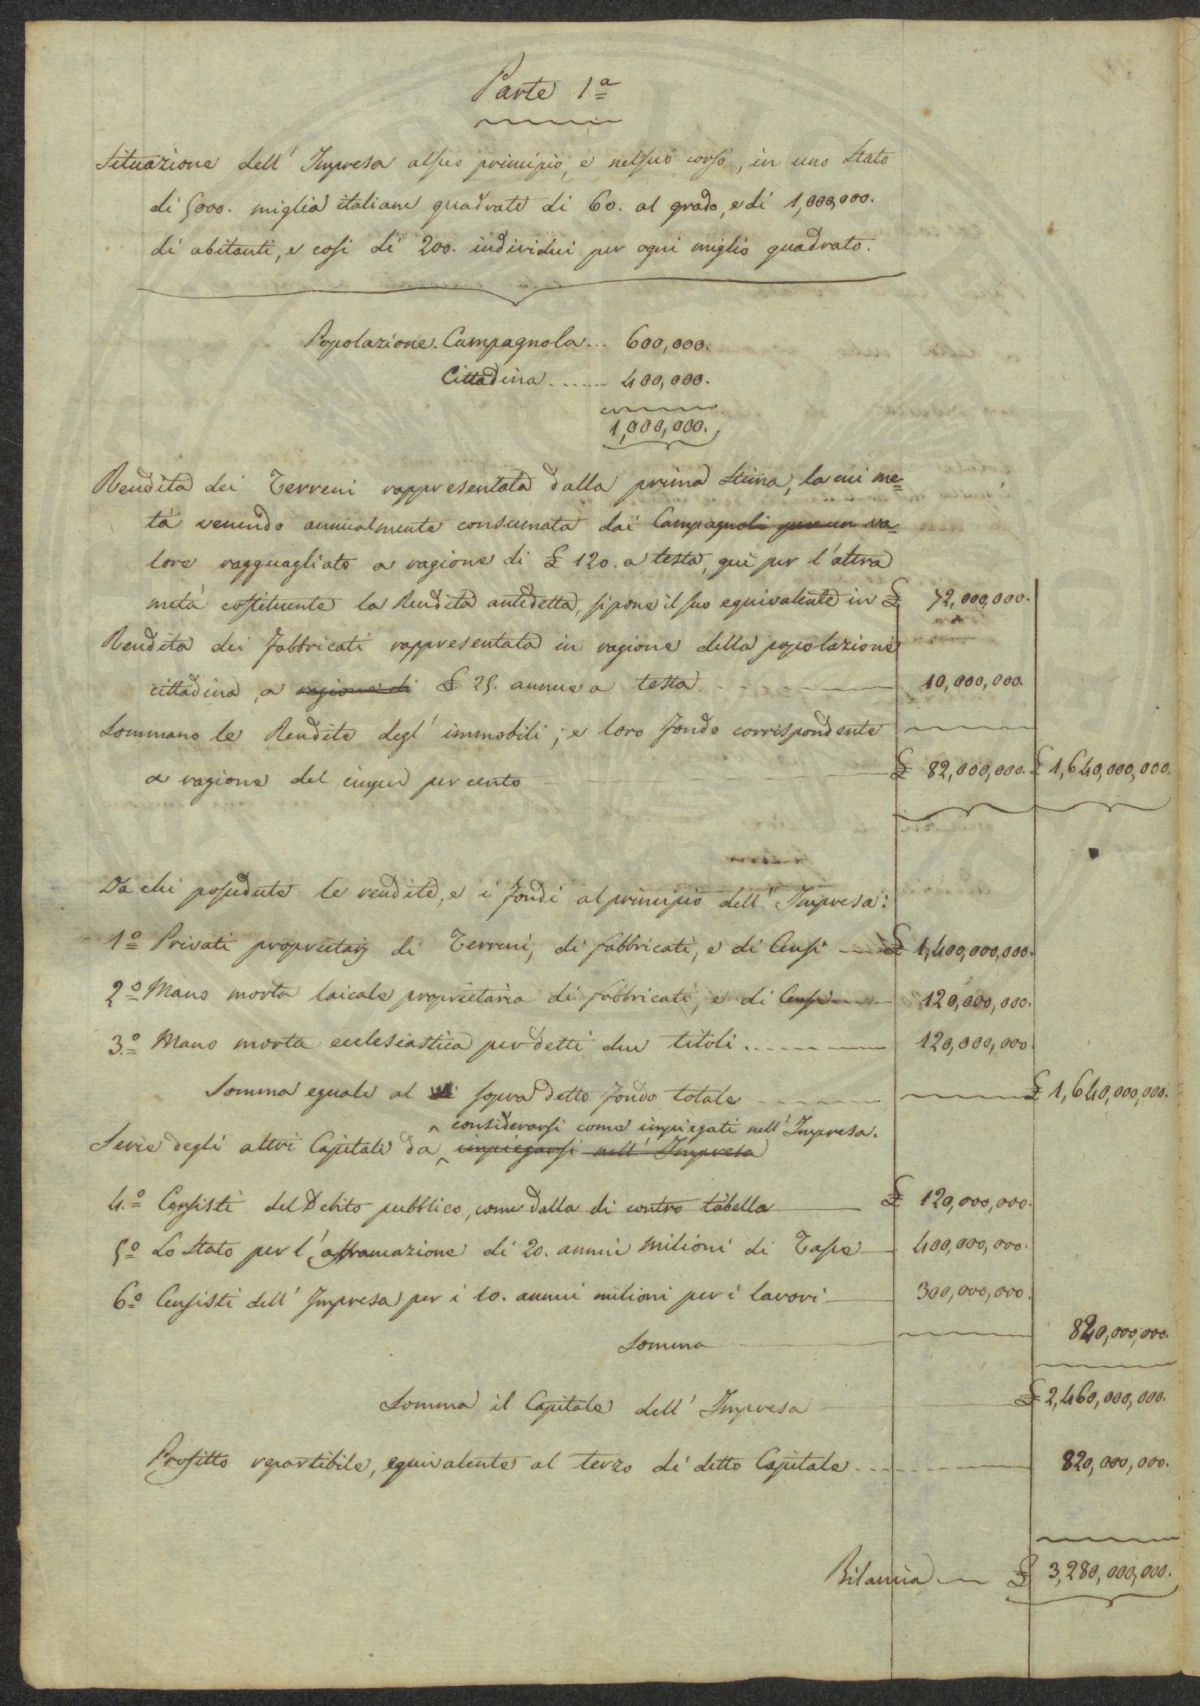 Parte 1ª
Situazione dell' Impresa al suo principio, e nel suo corso, in uno Stato
di 5000. miglia italiane quadrate di 60. al grado, e di 1,000,000.
di abitanti, e così di 200. individui per ogni miglio quadrato.
Popolazione. Campagnola... 600,000.
Cittadina ...... 400,000.
1,000,000.
Rendita dei Terreni rappresentata dalla prima Stima, la cui me=
tà venendo annualmente consumata dai Campagnoli per un va=
lore ragguagliato a ragione di £ 120. a testa, qui per l'altra
metà costituente la Rendita antedetta, si pone il suo equivalente in £ 72,000,000.
Rendita dei fabbricati rappresentata in ragione della popolazione
cittadina, a ragione di £ 25. annue a testa ---- 10,000,000.
Sommano le Rendite degl' immobili; e loro fondo corrispondente
a ragione del cinque per cento £ 82,000,000. £ 1,640,000,000.
Da chi possedute le rendite, e i fondi al principio dell' Impresa:
1º Privati proprietarj di Terreni, di fabbricati, e di Censi £ 1,400,000,000.
2º Mano morta laicale proprietaria di fabbricati, e di Censi 120,000,000.
3º Mano morta ecclesiastica per detti due titoli .... 120,000,000.
Somma eguale al sopradetto fondo totale £ 1,640,000,000.
considerarsi come impiegati nell' Impresa.
Serie degli altri Capitali da impiegarsi nell' Impresa
4.º Censisti del Debito pubblico, come dalla di contro tabella £ 120,000,000.
5º Lo Stato per l'affrancazione di 20. annui milioni di Tasse 400,000,000.
6º Censisti dell' Impresa per i 10. annui milioni per i lavori 300,000,000.
Somma 820,000,000.
Somma il Capitale dell' Impresa £ 2,460,000,000.
Profitto repartibile, equivalente al terzo di detto Capitale ... 820,000,000.
Bilancia £ 3,280,000,000.